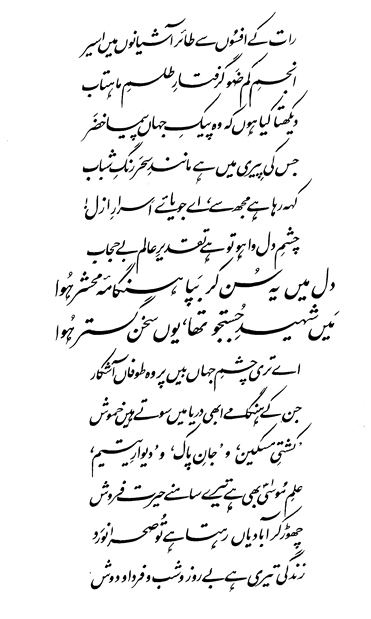 رات کے افسوں سے طائر آشیانوں میں اسیر
انجمِ کم ضَو گرفتارِ طلسمِ ماہتاب
دیکھتا کیا ہوں کہ وہ پیکِ جہاں پیما خضَر
جس کی پیری میں ہے مانندِ سحَر رنگِ شباب
کہہ رہا ہے مجھ سے، اے جویائے اسرارِ ازل!
چشمِ دل وا ہو تو ہے تقدیرِ عالم بے حجاب
دل میں یہ سُن کر بَپا ہنگامۂ محشر ہُوا
مَیں شہیدِ جُستجو تھا، یوں سخن گستر ہُوا
اے تری چشمِ جہاں بیں پر وہ طوفاں آشکار
جن کے ہنگامے ابھی دریا میں سوتے ہیں خموش
’کشتیِ مسکین‘ و ’جانِ پاک‘ و ’دیوارِ یتیم‘،
علمِ مُوسٰیؑ بھی ہے تیرے سامنے حیرت فروش
چھوڑ کر آبادیاں رہتا ہے تُو صحرا نورَد
زندگی تیری ہے بے روز و شب و فردا و دوش